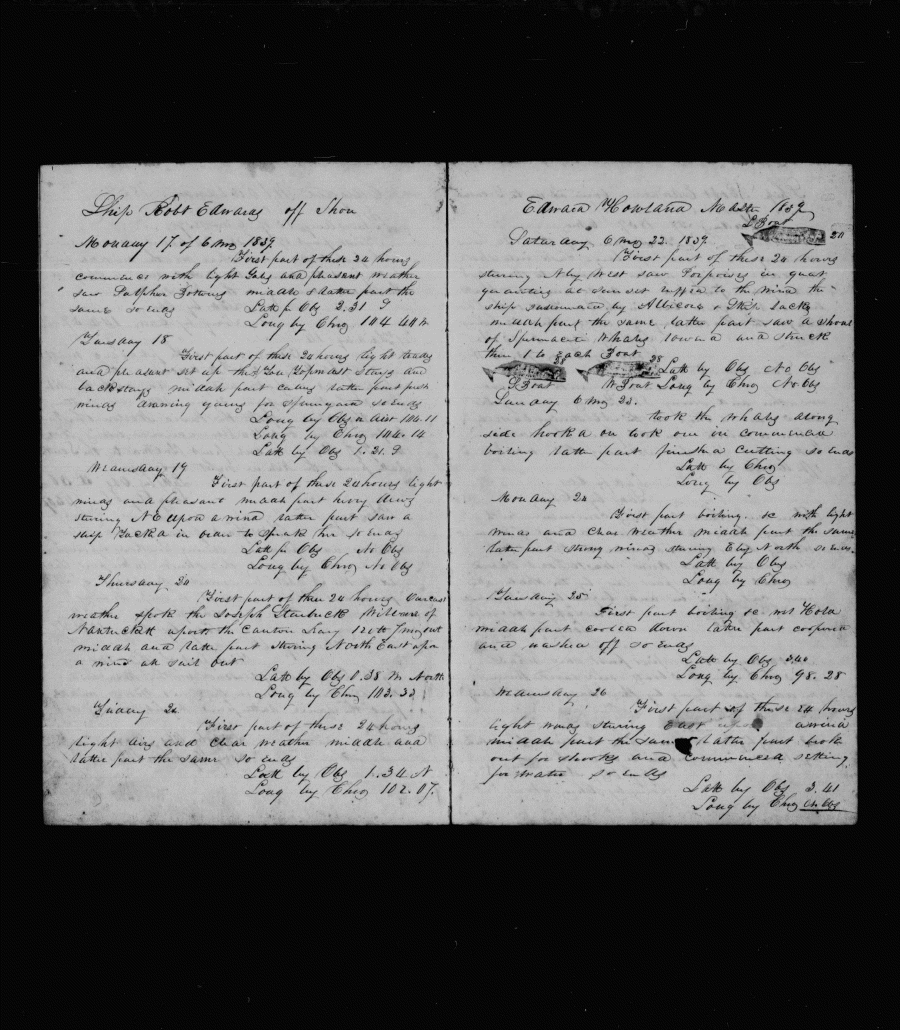 Ship Robt Edwards off Shou
Monday 17 of 6 mo 1839
First part of these 24 hours
commences with light Gales and pleasant weather
saw Sulpher Bottoms middle & latter part the
same so ends Latt by Obs 2.31 S
Long by Chro 104 40 m
Tuesday 18
First part of these 24 hours light trades
and pleasant set up the Fore Topmast Stays and
backstays middle part calm latter part fresh
winds drawing yarns for spunyarn so ends
Long by Obs 104.11
Long by Chro 104.14
Latt by Obs 1.21 S
Wednesday 19
First part of these 24 hours light
winds and pleasant middle part
steering NE upon a wind latter part saw a
ship Tacked in to speak her so ends
Latt by Obs No Obs
Long by Chro No Obs
Thursday 20
First part of these 24 hours
weather spoke the Joseph Starbuck of
Nantucket reports the Canton 1200 7 mo out
middle and latter part steering North East upon
a wind all sail out
Latt by Obs 0.38 m North
Long by Chro 103.33
Friday 21
First part of these 24 hours
light airs and clear weather middle and
latter part the same so ends
Latt by Obs 1.34 N
Long by Chro 102.07
Edward Howland Master 1839
L Boat
Saturday 6 mo 22 1839
First part of these 24 hours
steering N by West saw Porpoises in great
quantities at sunset luffed to the wind the
ship surrounded by Albicore & Skip Jacks
middle part the same latter part saw a shoal
of Spermacit Whales lowered and struck
then 1 to Each Boat
28 38 Latt by Obs No Obs
Boat W Boat Long by Chro No Obs
Sunday 6 mo 23
took the whales along
side hooked on took one in commenced
boiling latter part finished cutting so ends
Latt by Chro
Long by Obs
Monday 24
First part boiling &c with light
winds and clear weather middle part the same
latter part strong winds steering E by North so ends
Latt by Obs
Long by Chro
Tuesday 25
First part boiling &c wet Hold
middle part cooled down latter part coopered
and washed off so ends
Latt by Obs 3.40
Long by Chro 98.28
Wednesday 26
First part of these 24 hours
light winds steering East upon a wind
middle part the same latter part broke
out for shooks and commenced setting
for water so ends
Latt by Obs 3.41
Long by Chro No Obs